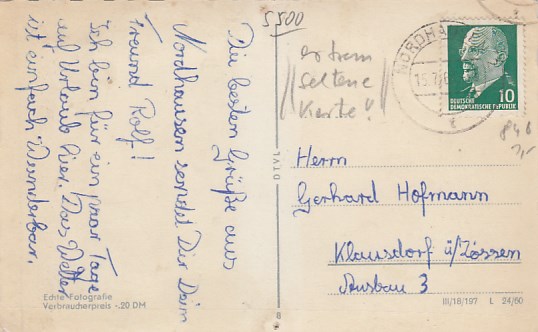 Die besten Grüße aus
Nordhausen sendet Dir Dein
Freund Rolf!
Ich bin für ein paar Tage
auf Urlaub hier. Das Wetter
ist einfach Wunderbar.
Echte Fotografie
Verbraucherpreis -.20 DM
5500
extrem
seltene
Karte!!
DTVL
8
NORDHA
15.7.6
10
DEUTSCHE
DEMOKRATISCHE REPUBLIK
846
Herrn
Gerhard Hofmann
Klausdorf ü/Zossen
Ausbau 3
III/18/197 L 24/60